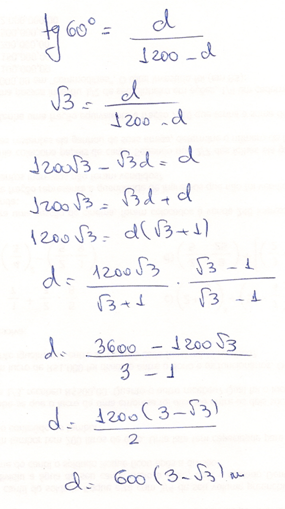 tg 60° = d / (1200 - d)
√3 = d / (1200 - d)
1200√3 - √3d = d
1200√3 = √3d + d
1200√3 = d(√3+1)
d = 1200√3 / (√3+1) · (√3 - 1) / (√3 - 1)
d = (3600 - 1200√3) / (3 - 1)
d = 1200(3-√3) / 2
d = 600(3-√3) m